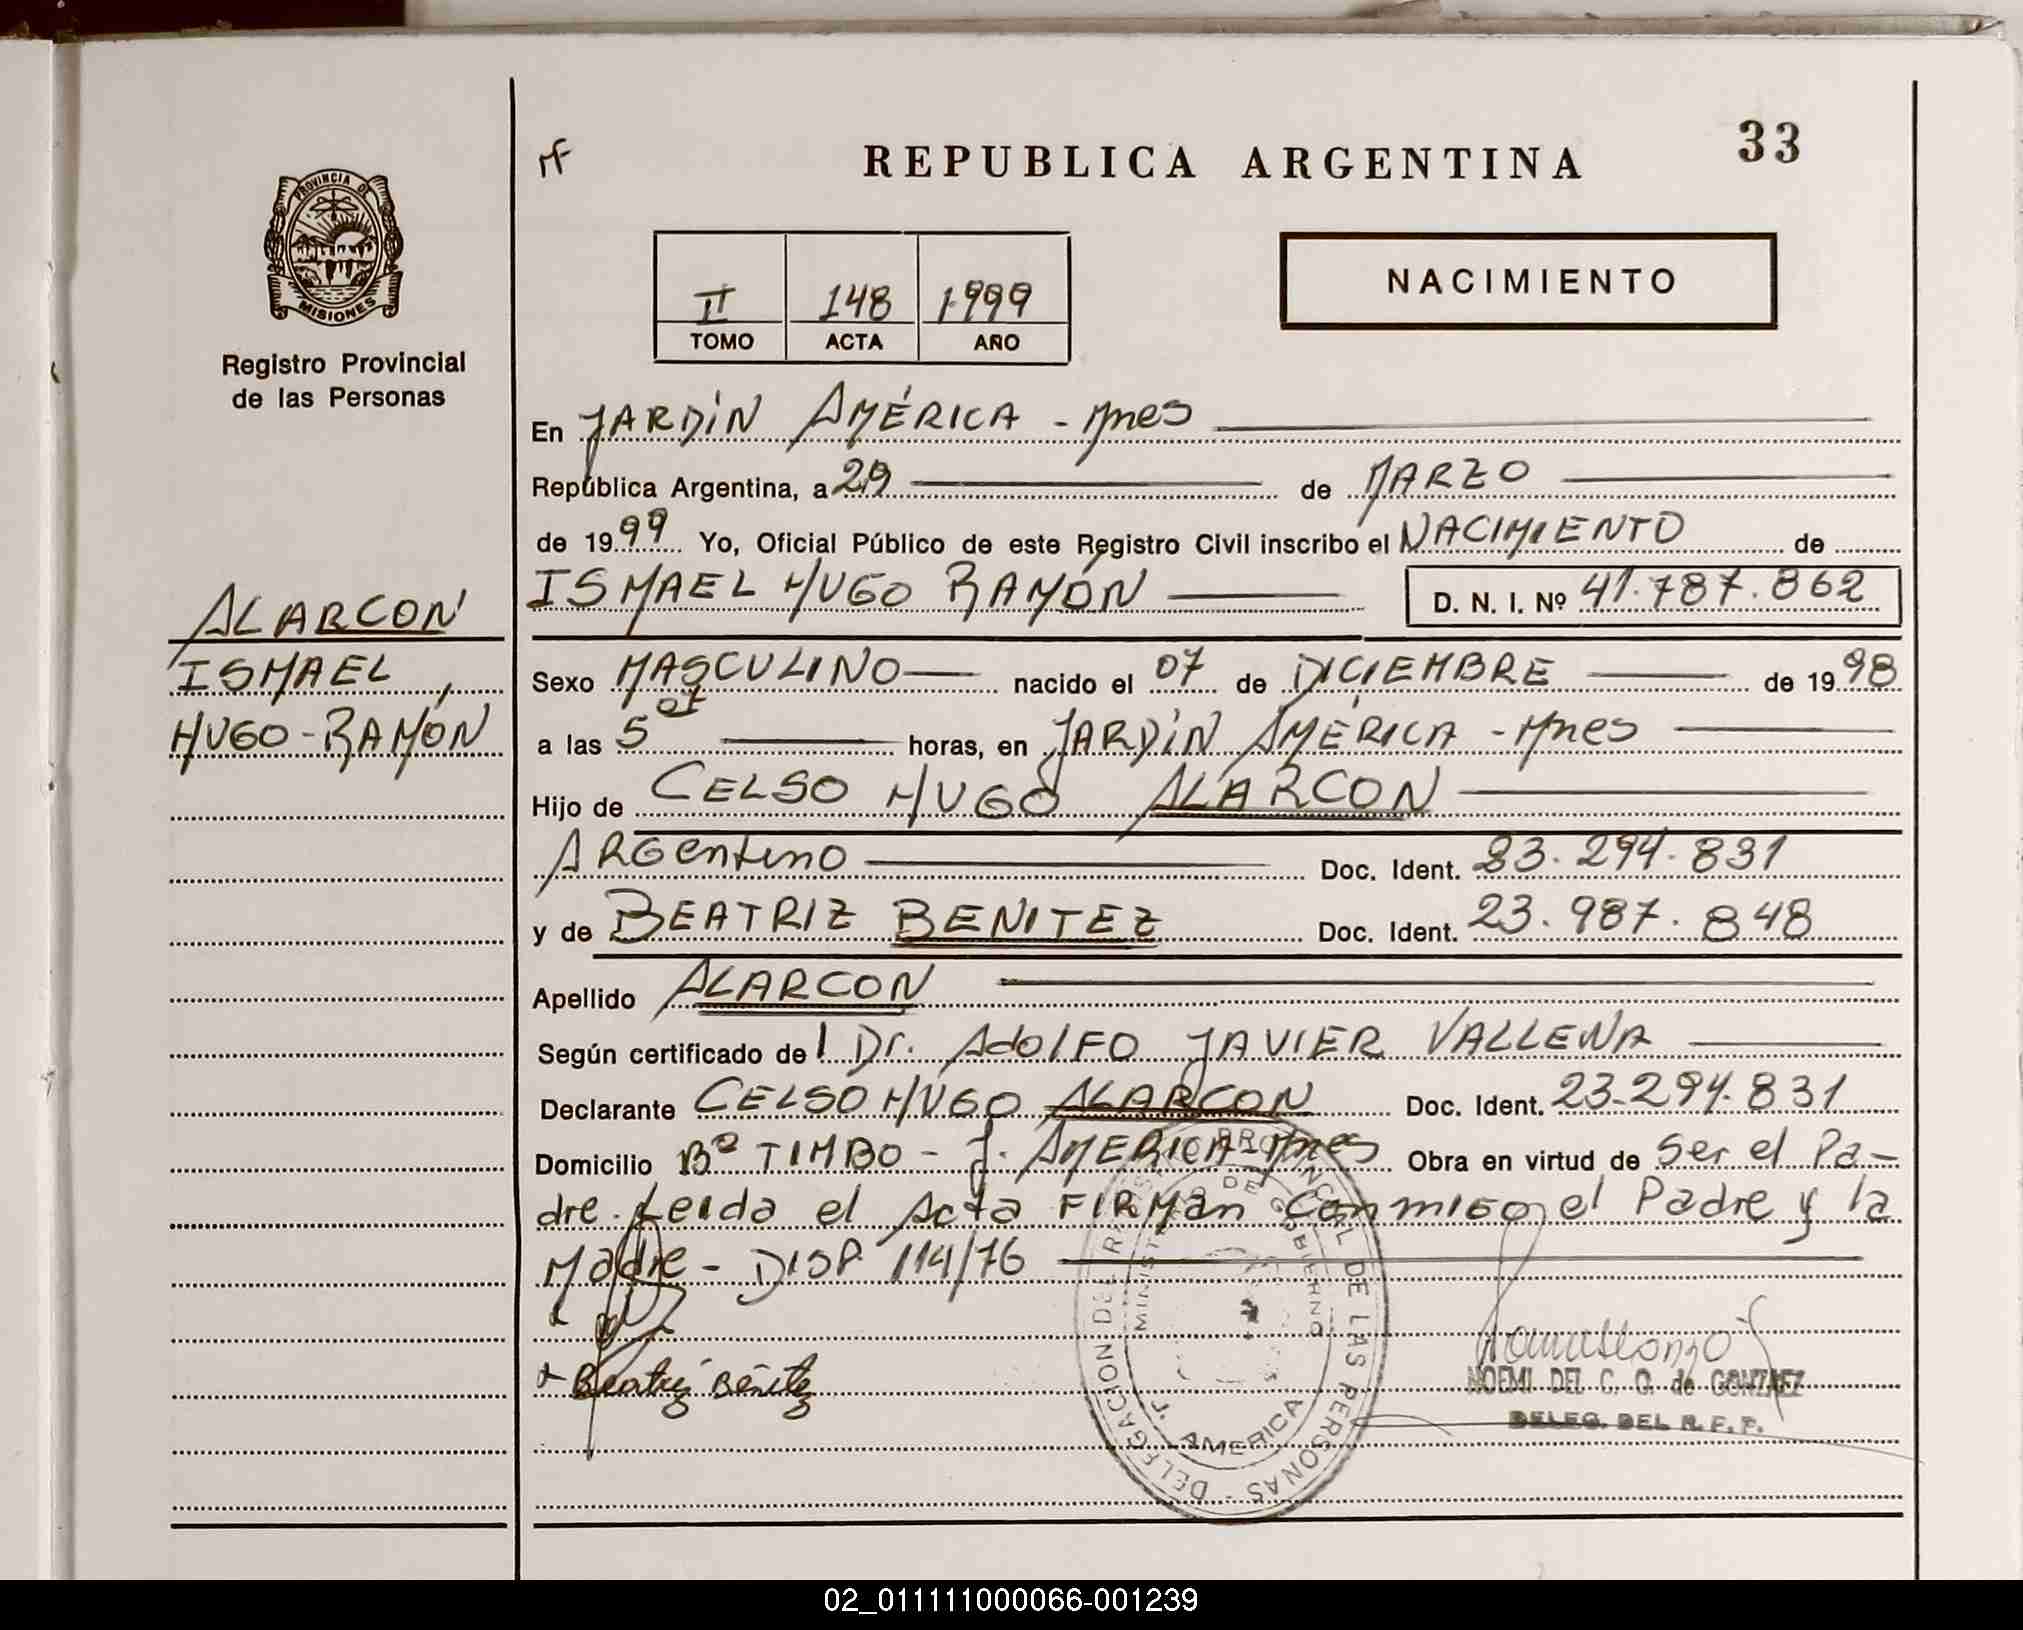 33
REPUBLICA ARGENTINA
PROVINCIA DE
MISIONES
Registro Provincial
de las Personas
NACIMIENTO
II 148 1999
TOMO ACTA AÑO
En JARDIN AMÉRICA - Mnes
República Argentina, a 29 de MARZO
de 1999 Yo, Oficial Público de este Registro Civil inscribo el NACIMIENTO de
ISMAEL HUGO RAMÓN D. N. I. Nº 41.787.862
ALARCON
ISMAEL,
HUGO-RAMÓN
Sexo MASCULINO nacido el 07 de DICIEMBRE de 1998
a las 5 05 horas, en JARDIN AMÉRICA - Mnes
Hijo de CELSO HUGO ALARCON
ARGentino Doc. Ident. 23.294.831
y de BEATRIZ BENITEZ Doc. Ident. 23.987.848
Apellido ALARCON
Según certificado de l Dr. AdOlFO JAVIER VALLENA
Declarante CELSO HUGO ALARCON Doc. Ident. 23.294.831
Domicilio Bº TIMBO - J. AMERICA Mnes Obra en virtud de Ser el Pa-
dre. Leida el Acta FIRMan Conmigo el Padre y la
Madre - DISP. 114/76
Beatriz Benitez
DELEGACION DE REGISTRO PROVINCIAL DE LAS PERSONAS -
MINISTERIO DE GOBIERNO
J. AMERICA
NOEMI DEL C. G. de GONZALEZ
DELEG. DEL R. P. P.
02_011111000066-001239